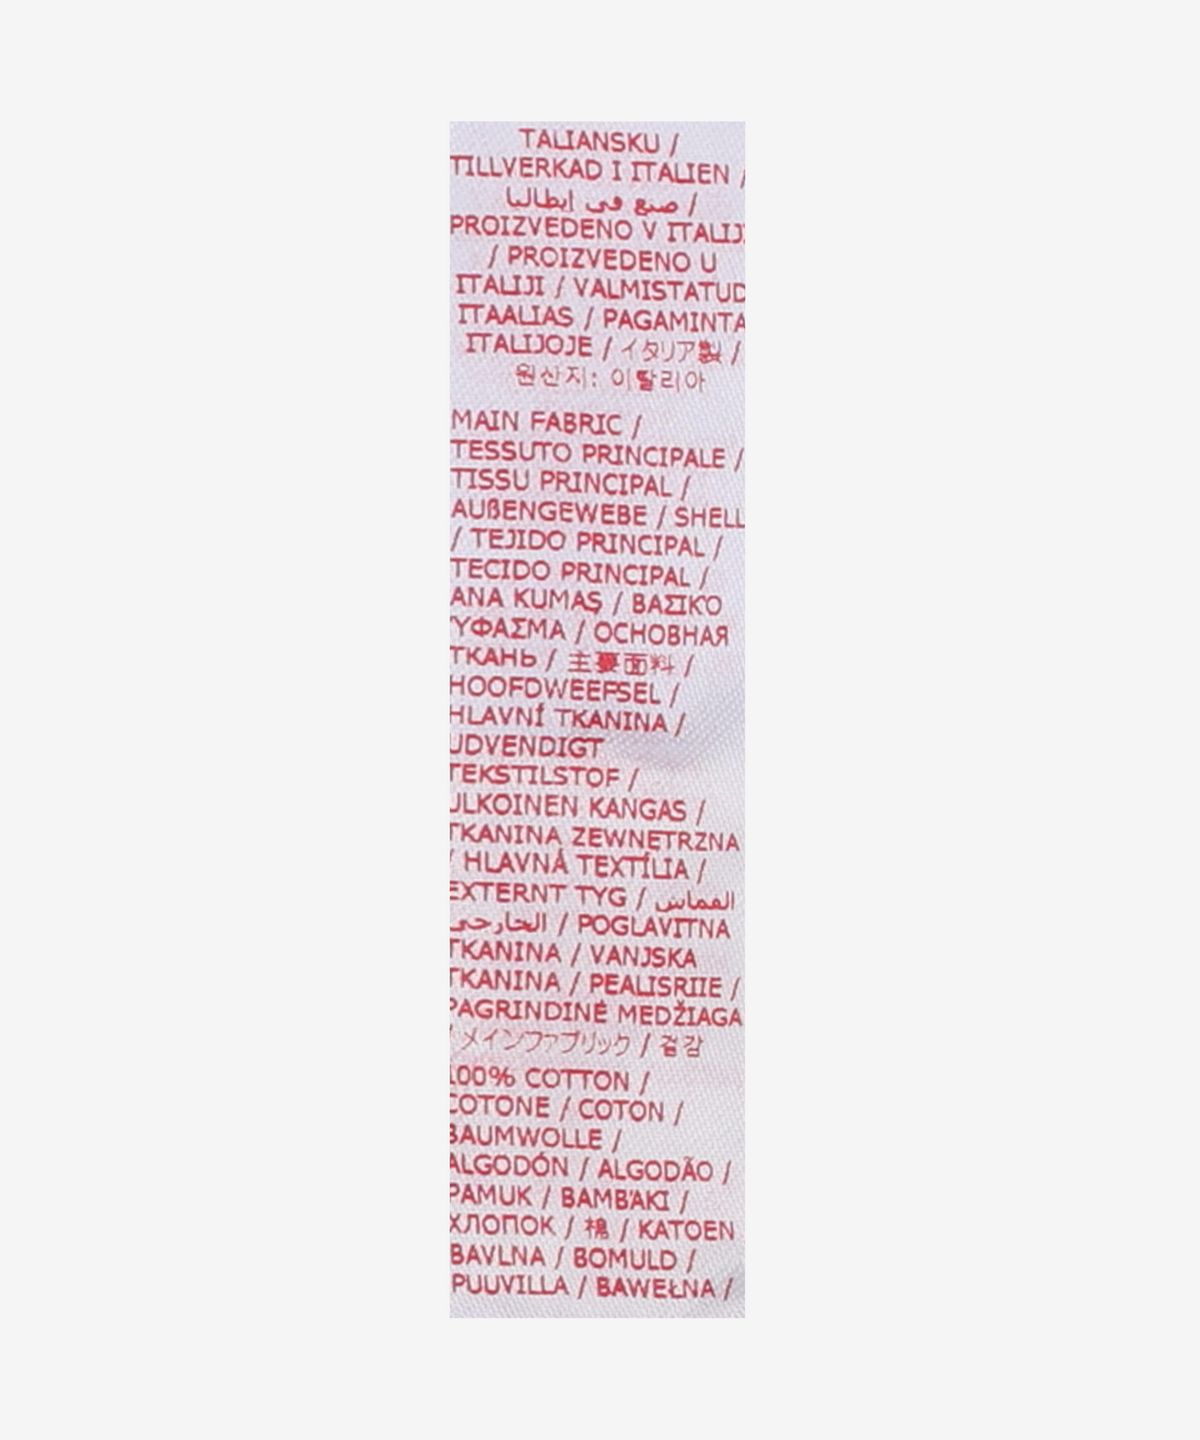 TALIANSKU /
TILLVERKAD I ITALIEN /
صنع في إيطاليا /
PROIZVEDENO V ITALIJI
/ PROIZVEDENO U
ITALIJI / VALMISTATUD
ITAALIAS / PAGAMINTA
ITALIJOJE / イタリア製 /
원산지: 이탈리아
MAIN FABRIC /
TESSUTO PRINCIPALE /
TISSU PRINCIPAL /
AUßENGEWEBE / SHELL
/ TEJIDO PRINCIPAL /
TECIDO PRINCIPAL /
ANA KUMAŞ / ΒΑΣΙΚΌ
ΎΦΑΣΜΑ / ОСНОВНАЯ
ТКАНЬ / 主要面料 /
HOOFDWEEFSEL /
HLAVNÍ TKANINA /
UDVENDIGT
TEKSTILSTOF /
ULKOINEN KANGAS /
TKANINA ZEWNĘTRZNA
/ HLAVNÁ TEXTÍLIA /
EXTERNT TYG / القماش
الخارجي / POGLAVITNA
TKANINA / VANJSKA
TKANINA / PEALISRIIE /
PAGRINDINĖ MEDŽIAGA
/ メインファブリック / 겉감
100% COTTON /
COTONE / COTON /
BAUMWOLLE /
ALGODÓN / ALGODÃO /
PAMUK / ΒΑΜΒΆΚΙ /
ХЛОПОК / 棉 / KATOEN
BAVLNA / BOMULD /
PUUVILLA / BAWEŁNA /